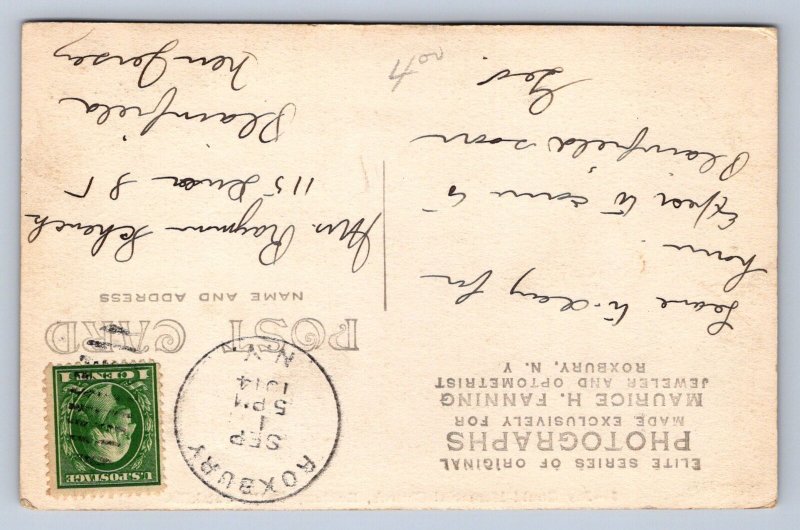 ELITE SERIES OF ORIGINAL
PHOTOGRAPHS
MADE EXCLUSIVELY FOR
MAURICE H. FANNING
JEWELER AND OPTOMETRIST
ROXBURY, N. Y
Leave to-day for
home
Expect to come to
Plainfield soon
Geo.
POST CARD
NAME AND ADDRESS
Mrs Raymon Schenck
115 ST
Plainfield
New Jersey
ROXBURY
SEP
5 PM
1914
N.Y.
U.S. POSTAGE
1 CENT 1
400